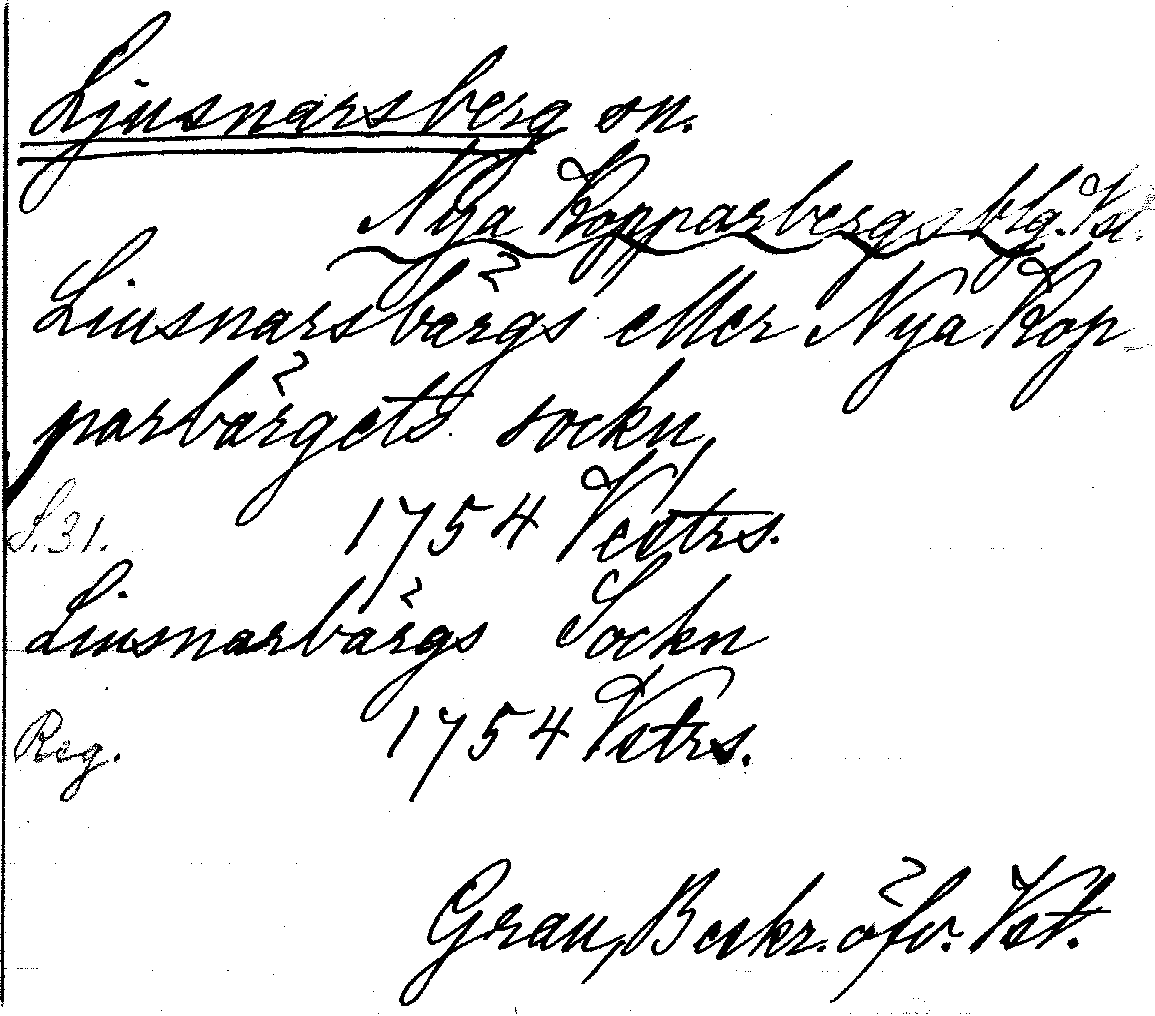 Ljusnarsberg sn.
Nya Kopparbergs blg. Vst.
Liusnarsbärgs eller Nya Kop-
parbärgets sockn,
S. 31. 1754 Vestrs.
Liusnarbärgs Sockn
Reg. 1754 Vstrs.
Grau, Beskr. öfv. Vst.